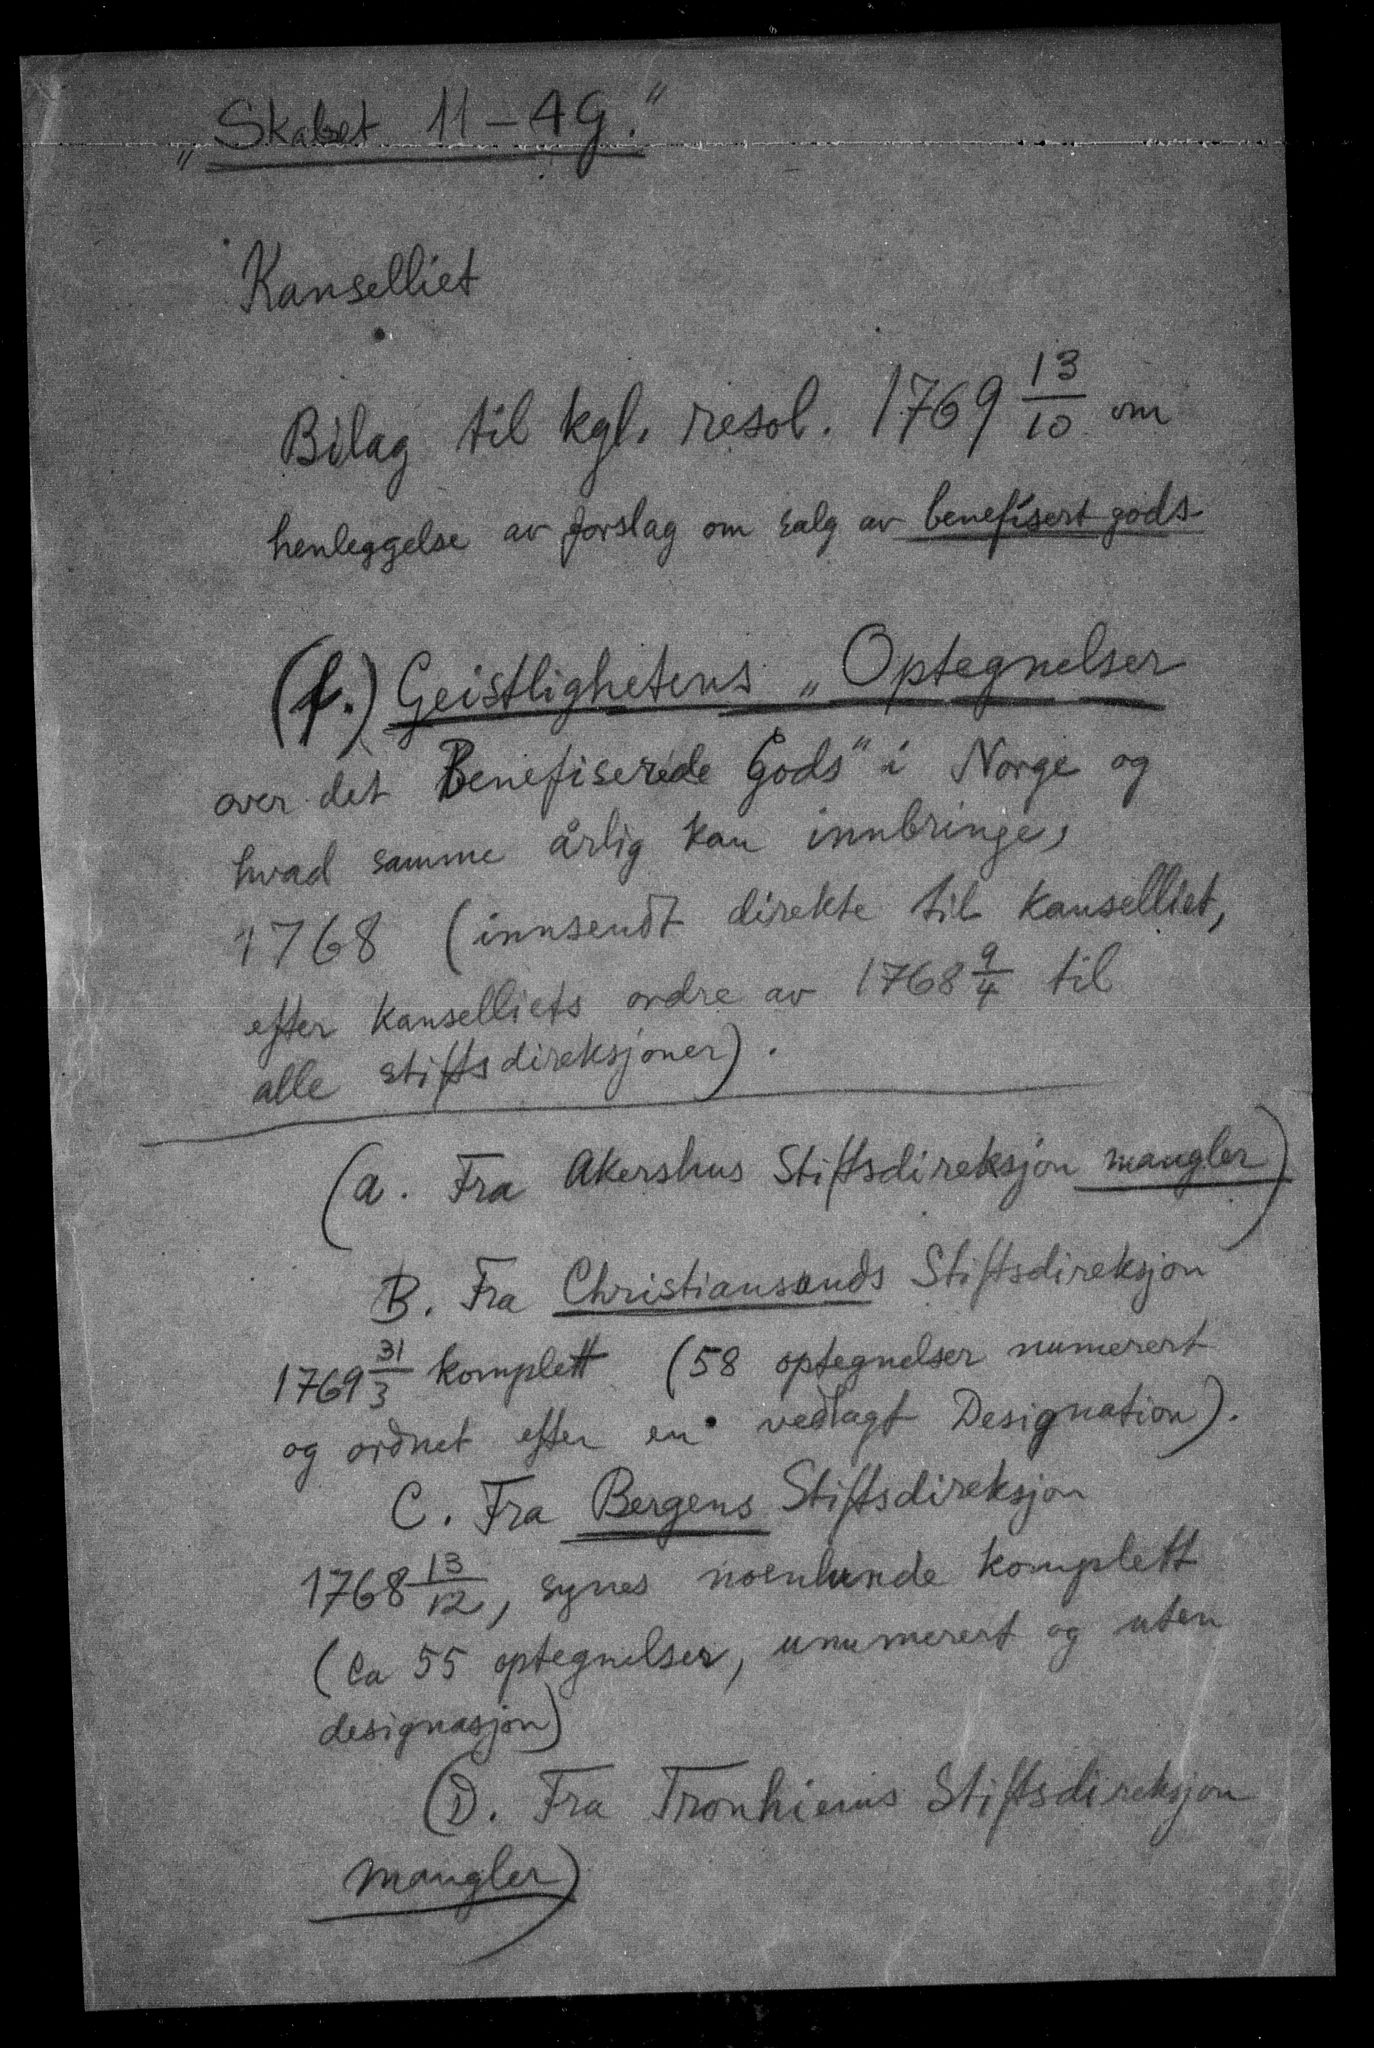 „Skabet 11 – 4G.“
Kanselliet
Bilag til kgl. resol. 1769 13/10 om
henleggelse av forslag om salg av benefisert gods
(f.) Geistlighetens „Optegnelser
over det Benefiserede Gods“ i Norge og
hvad samme årlig kan innbringe,
1768 (innsendt direkte til kanselliet,
efter kanselliets ordre av 1768 9/4 til
alle stiftsdireksjoner).
(a. Fra Akershus Stiftsdireksjon mangler)
B. Fra Christiansands Stiftsdireksjon
1769 31/3 komplett (58 optegnelser numerert
og ordnet efter en vedlagt Designation).
C. Fra Bergens Stiftsdireksjon
1768 13/12, synes noenlunde komplett
(ca 55 optegnelser, unumerert og uten
designasjon)
(D. Fra Tronhiems Stiftsdireksjon
mangler)